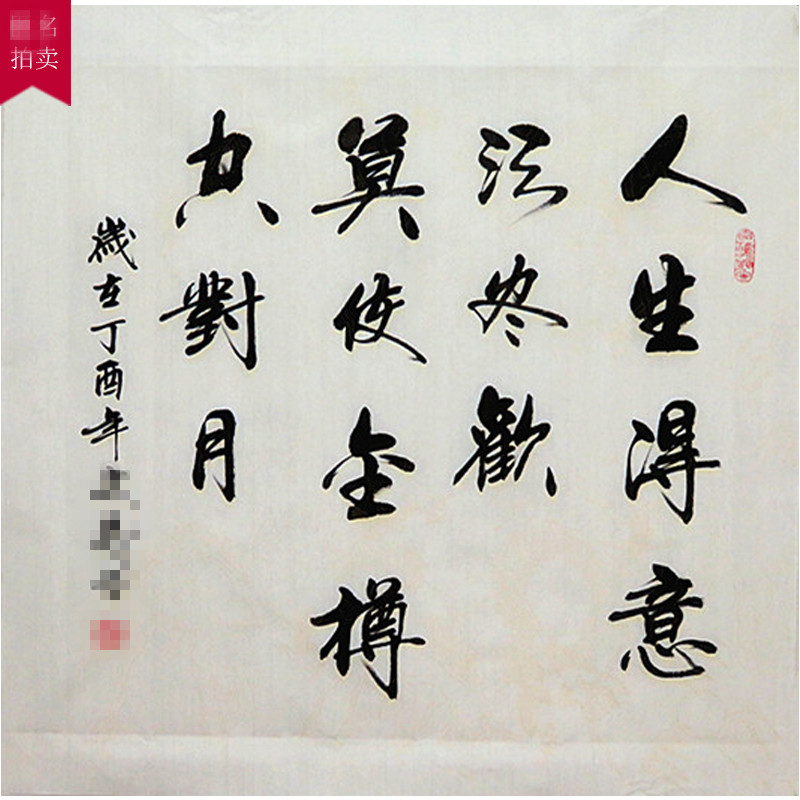 人生得意
须尽歡
莫使金樽
空對月
歲在丁酉年
拍卖